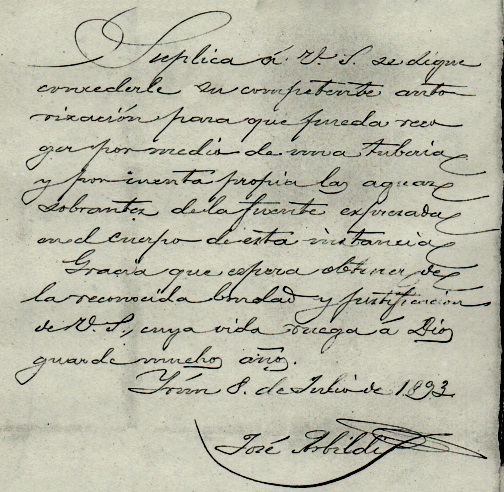 Suplica á V. S. se digne
concederle su competente auto
rización para que pueda reco
ger por medio de una tuberia
y por cuenta propia las aguas
sobrantes de la fuente expresada
en el cuerpo de esta instancia
Gracia que espera obtener de
la reconocida bondad y justificación
de V. S., cuya vida ruega á Dios
guarde muchos años.
Irún 8. de Julio de 1893
José Arbilde